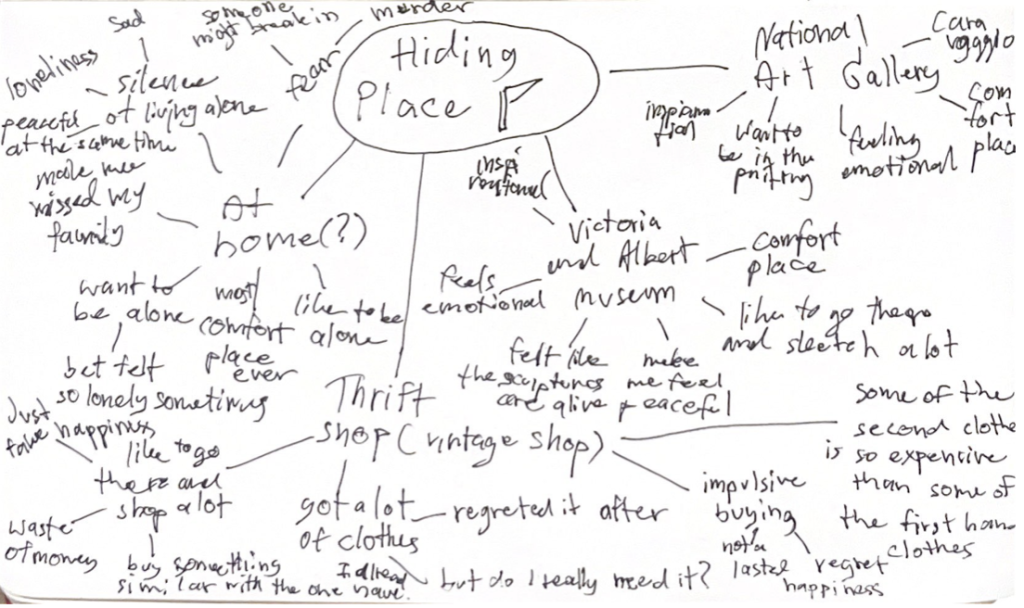 Hiding
Place
National
Art Gallery
Cara
vaggio
Com
fort
place
feeling
emotional
want to
be in the
painting
inspiration
inspi
rational
Victoria
and Albert
museum
comfort
place
like to go there
and sketch a lot
make
me feel
peaceful
felt like
the sculptures
are alive
feels
emotional
At
home(?)
silence
of living alone
sad
loneliness
peaceful
at the same time
made me
missed my
family
fear
someone
might break in
murder
want to
be alone
but felt
so lonely sometimes
most
comfort
place
ever
like to be
alone
Thrift
shop (vintage shop)
like to go
there and
shop a lot
Just
fake happiness
waste
of money
buy something
similar with the one I already have.
got a lot
of clothes
regretted it after
but do I really need it?
impulsive
buying
not a
lasted
happiness
regret
some of the
second clothe
is so expensive
than some of
the first hand
clothes